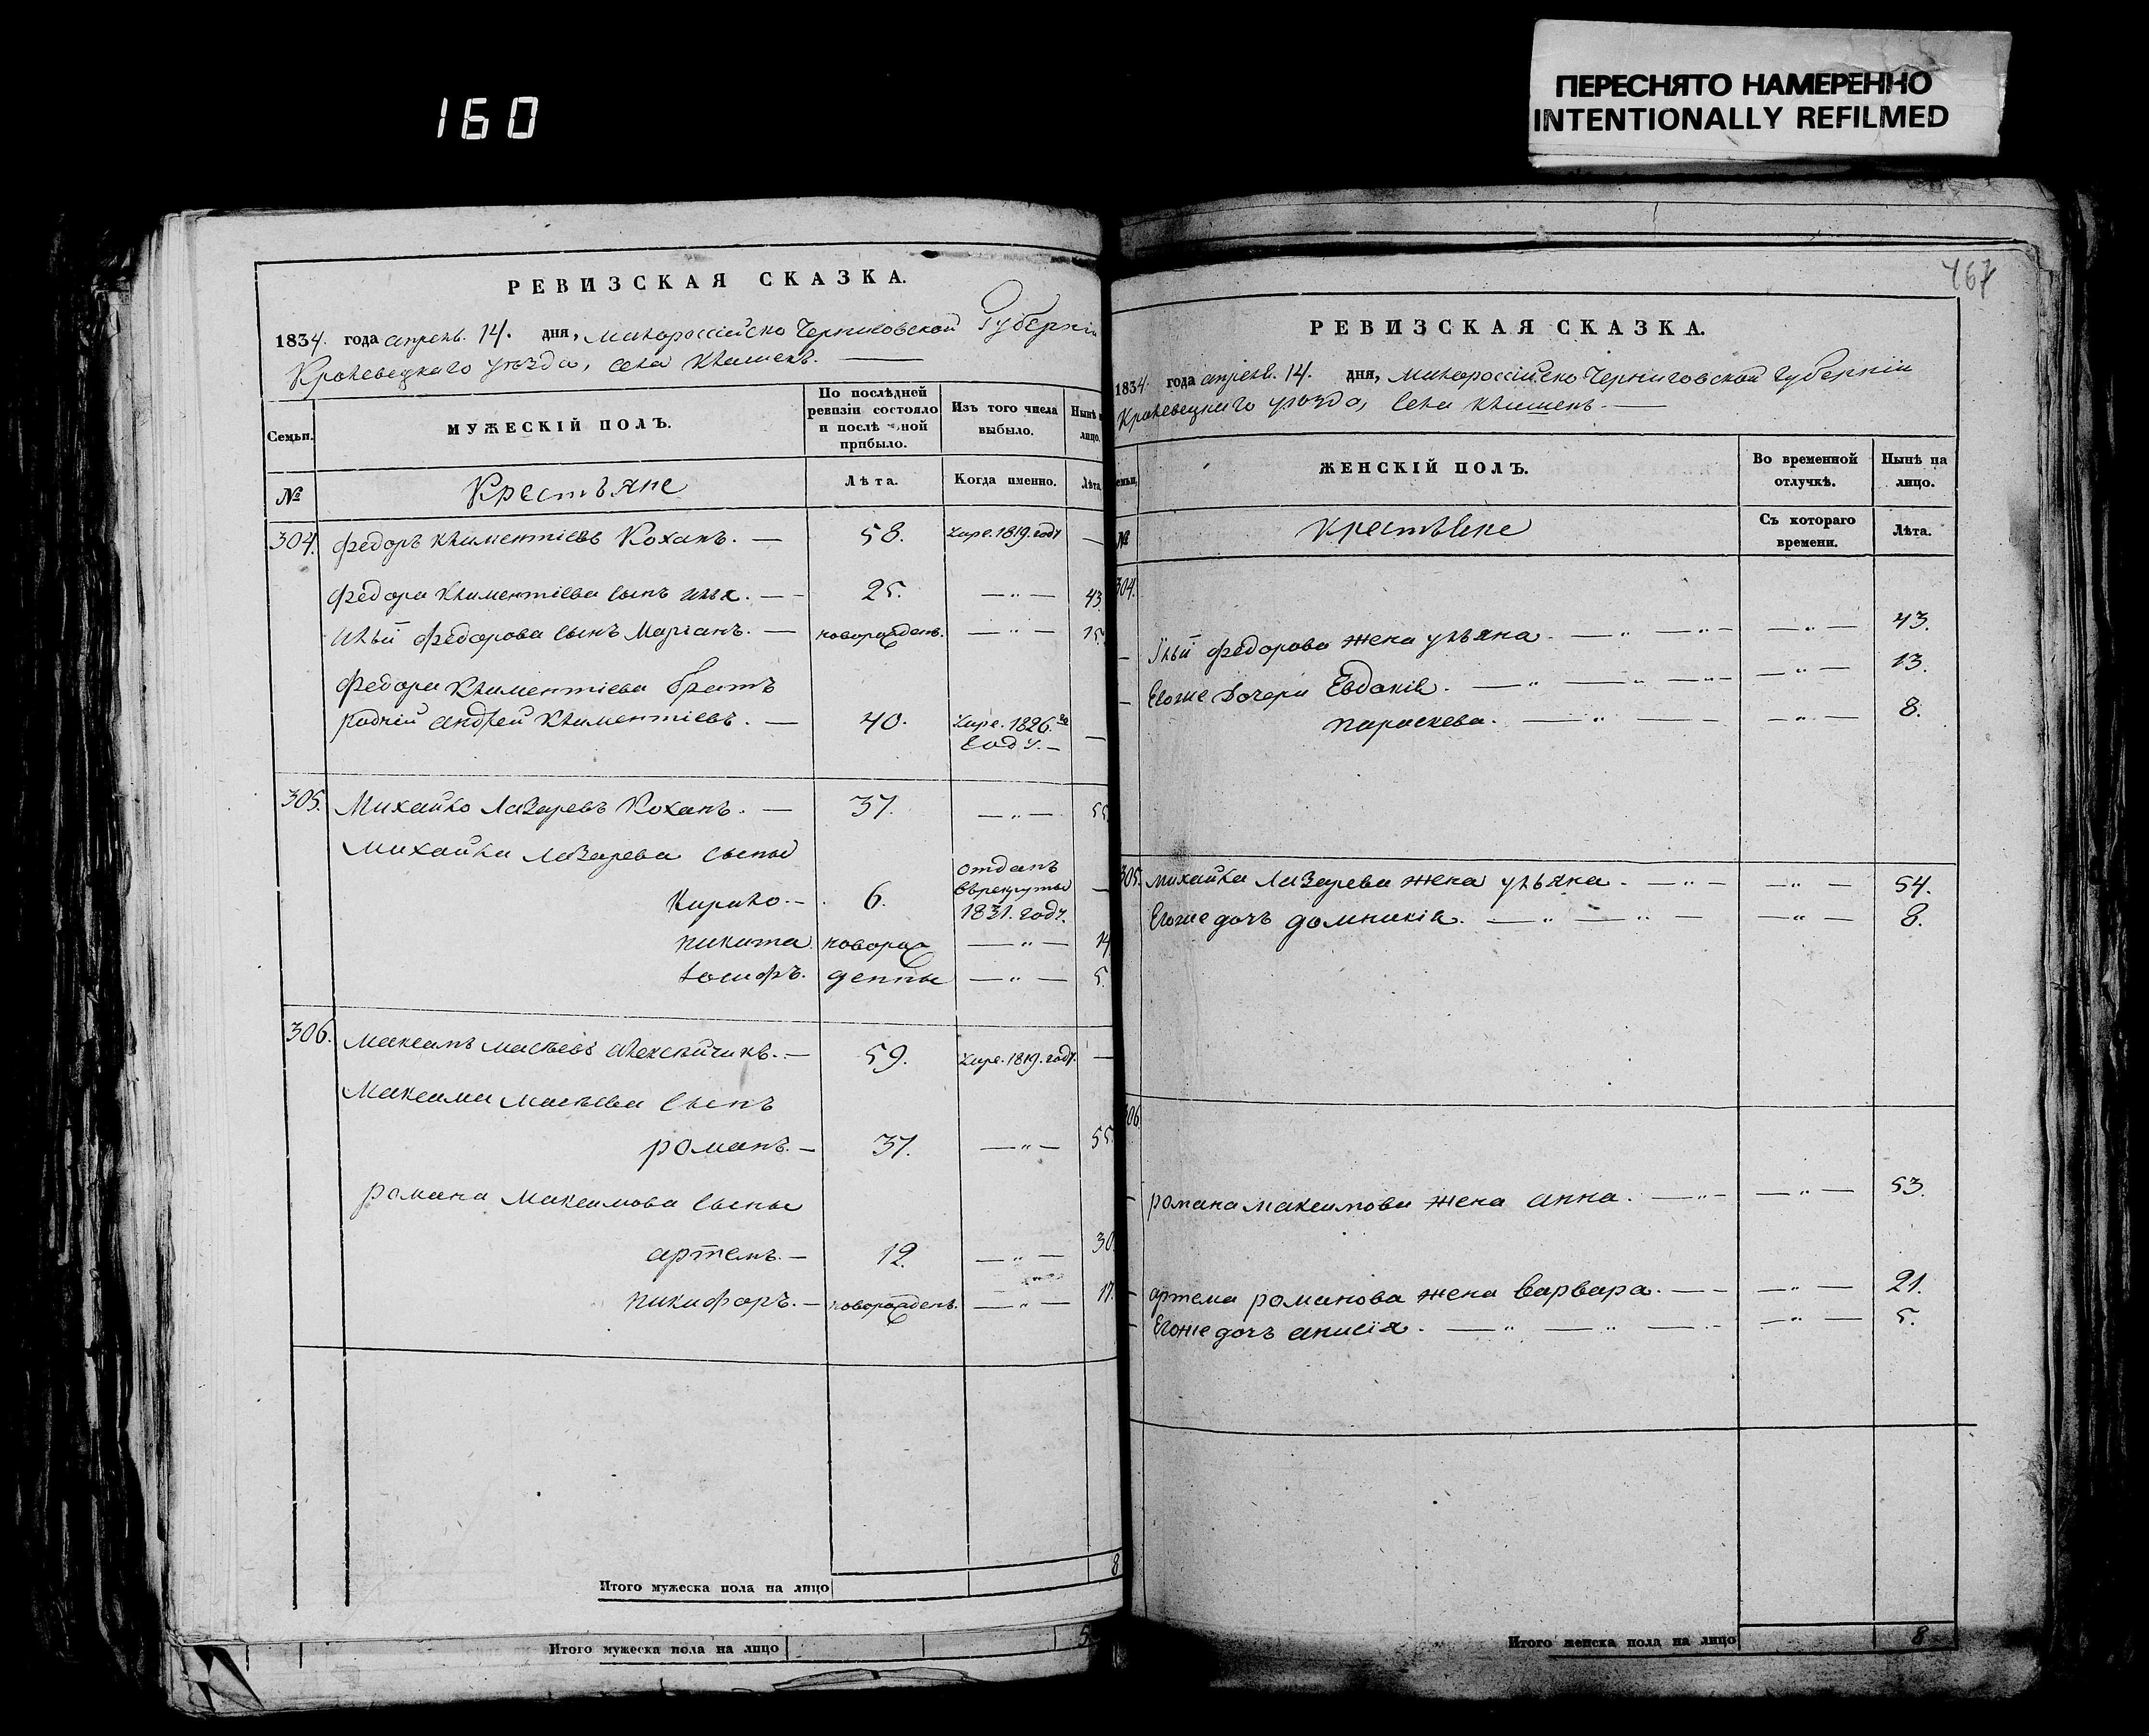 160
ПЕРЕСНЯТО НАМЕРЕННО
INTENTIONALLY REFILMED
РЕВИЗСКАЯ СКАЗКА.
1834. года апреля. 14. дня, малороссійско Черниговской Губерніи
Кролевецкаго уѣзда, села Клишекъ.
Семьи.
МУЖЕСКІЙ ПОЛЪ.
По послѣдней ревизіи состояло и послѣ оной прибыло.
Изъ того числа выбыло.
Нынѣ
лицо.
№
Крестьяне
Лѣта.
Когда именно.
Лѣта
304. Федоръ Климентіевъ Коханъ. — 58. умре. 1819. году —
Федора Климентіева сынъ илья. — 25. — „ — 43.
Ильи Федорова сынъ Маріанъ. — новорожденъ. — „ — 15
Федора Климентіева братъ
родній андрей Климентіевъ. — 40. умре. 1826.го году. — —
305. Михайло Лазаревъ Коханъ. — 37. — „ — 55
Михайла Лазарева сыны
Кирило. — 6. отданъ врекруты 1831. году. —
никита новорож — „ — 14
іосифъ. денны — „ — 5.
306. максимъ масѣевъ алексѣйчикъ. — 59. умре. 1819. году. —
Максима масѣева сынъ
романъ. — 37. — „ — 55
романа максимова сыны
артемъ. — 12. — „ — 30
никифоръ. — новорожденъ. — „ — 17.
Итого мужеска пола на лицо 8
Итого мужеска пола на лицо 5
467
РЕВИЗСКАЯ СКАЗКА.
1834. года апреля. 14. дня, малороссійско Черниговской губерніи
Кролевецкаго уѣзда, села клишекъ. —
семьи.
ЖЕНСКІЙ ПОЛЪ.
Во временной отлучкѣ.
Нынѣ на лицо.
№
крестьяне
Съ котораго времени.
Лѣта.
304.
Ильи федорова жена ульяна. — „ — „ — — „ — 43.
Егоже дочери Евдокія. — „ — „ — „ — — „ — 13.
параскева. — „ — — — „ — 8.
305. михайла Лазарева жена ульяна. — „ — — „ — 54.
Егоже дочь домникія. — „ — „ — — „ — 8.
306.
романа максимова жена анна. — „ — — „ — 53.
артема романова жена варвара. — — — „ — 21.
Егоже дочь анисія. — „ — „ — „ — — „ — 5.
Итого женска пола на лицо 8